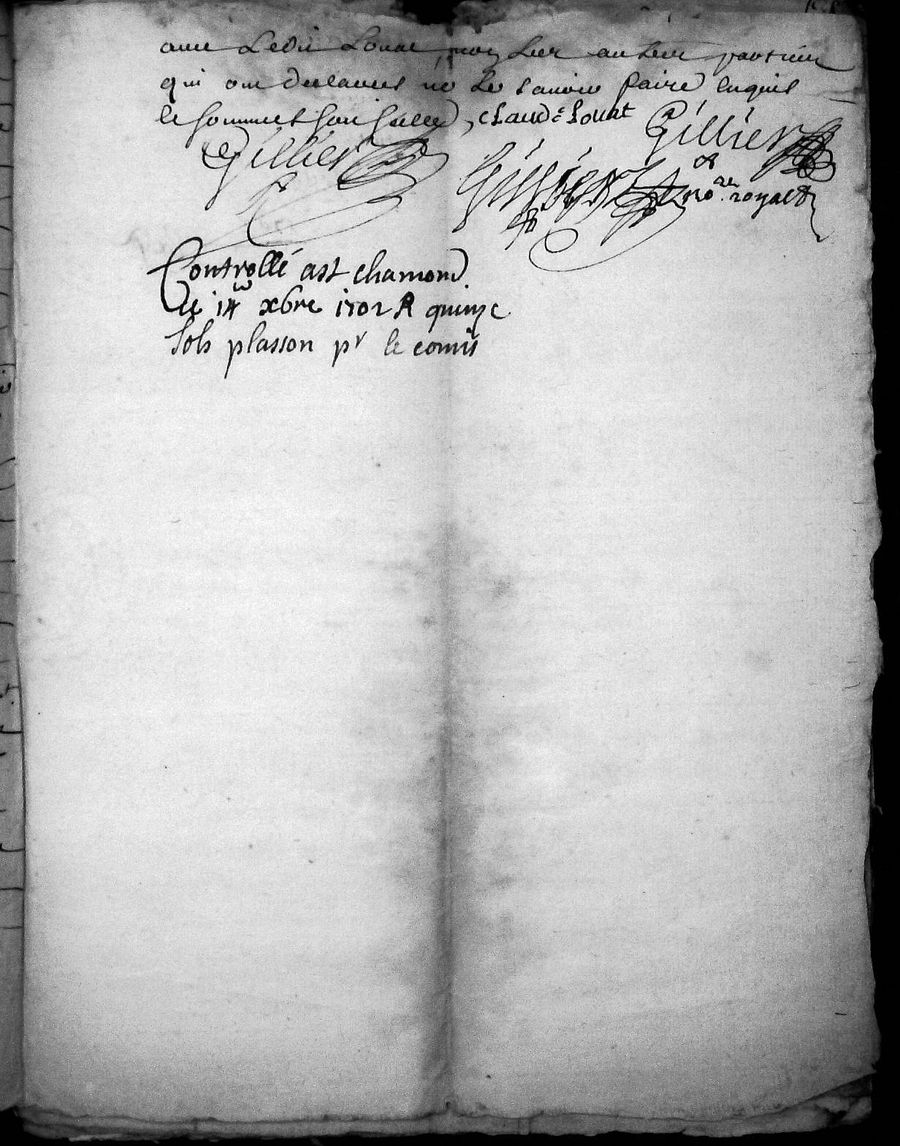 avec Ledit Louat non les autres parties
qui ont declarees ne le savoir faire enquis
le sommes faite, Claude Louat
Gillier Gillier
Gillier no.re royal
Controllé a st chamond
Ce 14 xbre 1702 R quinze
sols plasson pr le comis